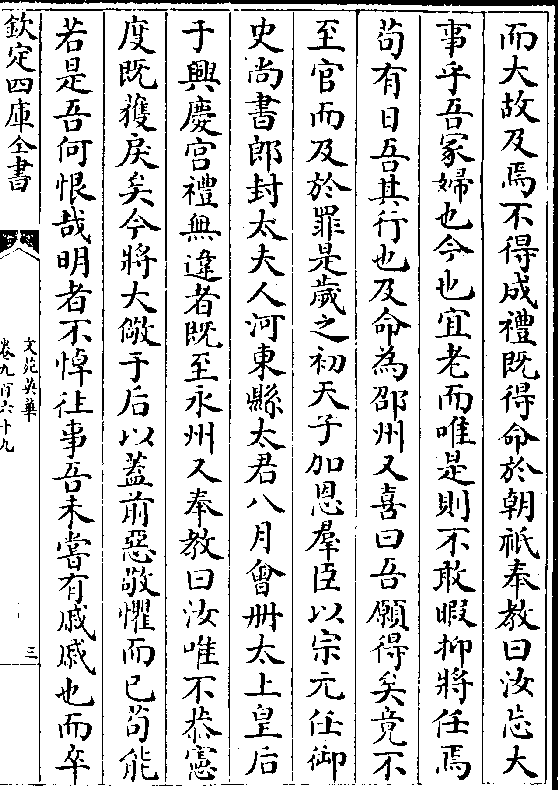 而大故及焉不得成禮既得命於朝祇奉教曰汝忘大
事乎吾冡婦也今也宜老而唯是則不敢暇抑將任焉
苟有日吾其行也及命為邵州又喜曰吾願得矣竟不
至官而及於罪是歲之初天子加恩羣臣以宗元任御
史尚書郎封太夫人河東縣太君八月會冊太上皇后
于興慶宫禮無違者既至永州又奉教曰汝唯不恭憲
度既獲戾矣今將大儆于后以蓋前惡敬懼而已苟能
若是吾何恨哉明者不悼往事吾未嘗有戚戚也而卒
欽定四庫全書
文苑英華
卷九百六十九
三